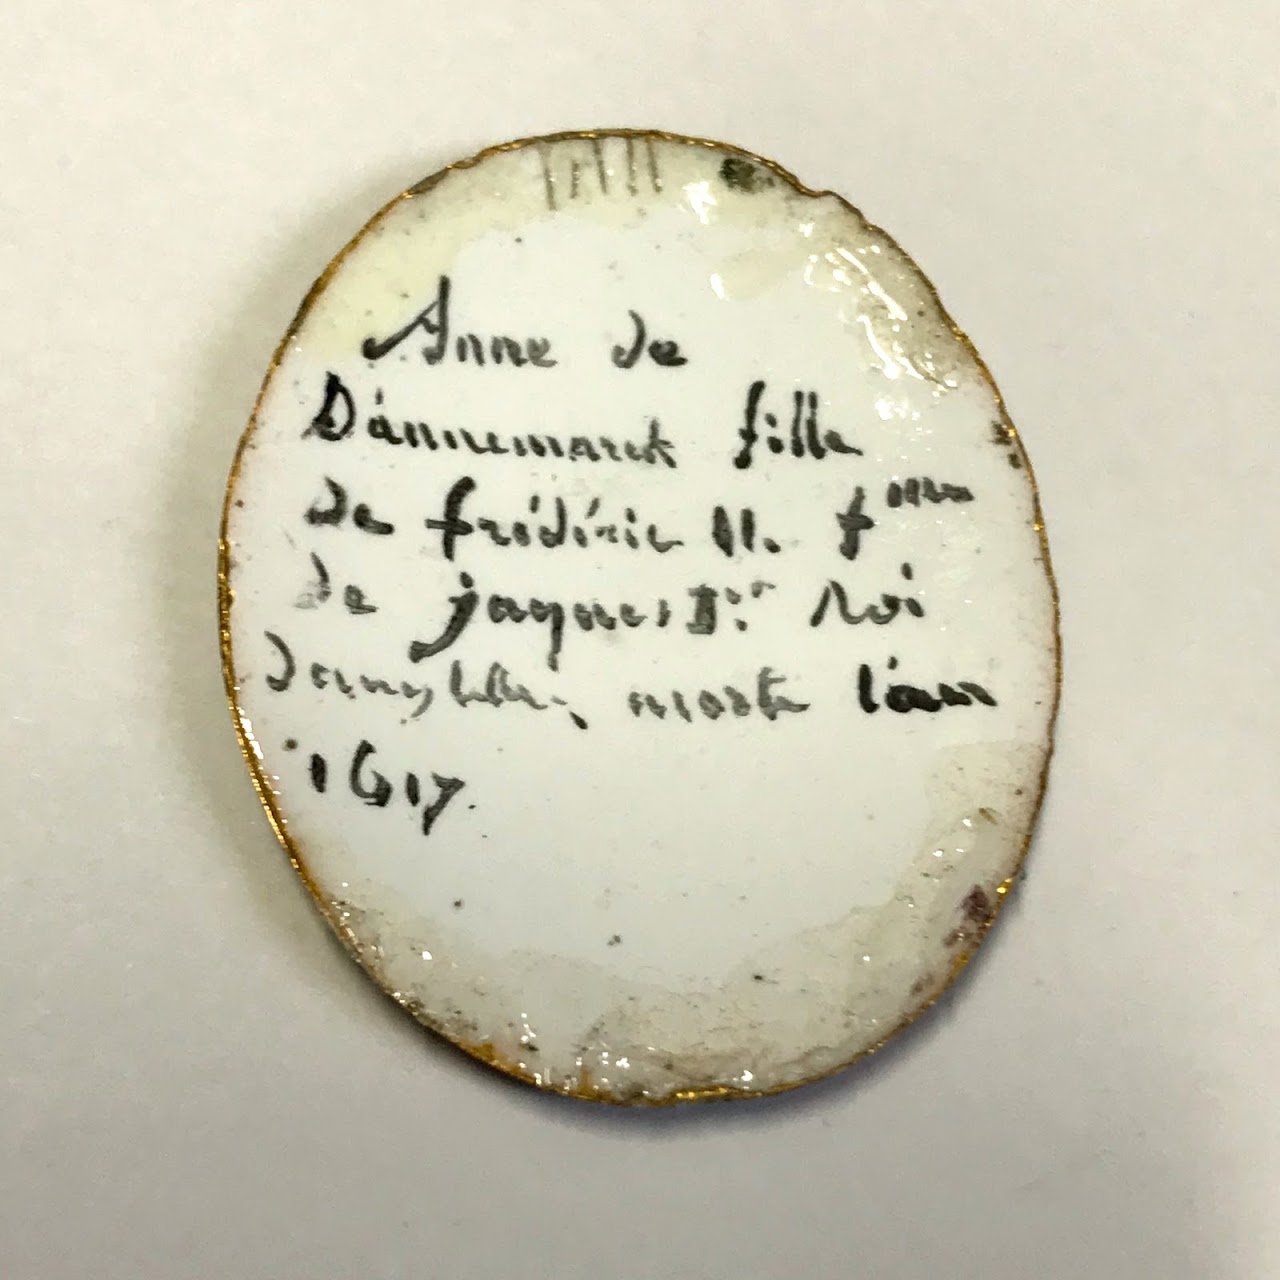 Anne de
Dánnemarck fille
de frédéric II. f^me
de jaques I:^er Roi
morte l'an
1617.